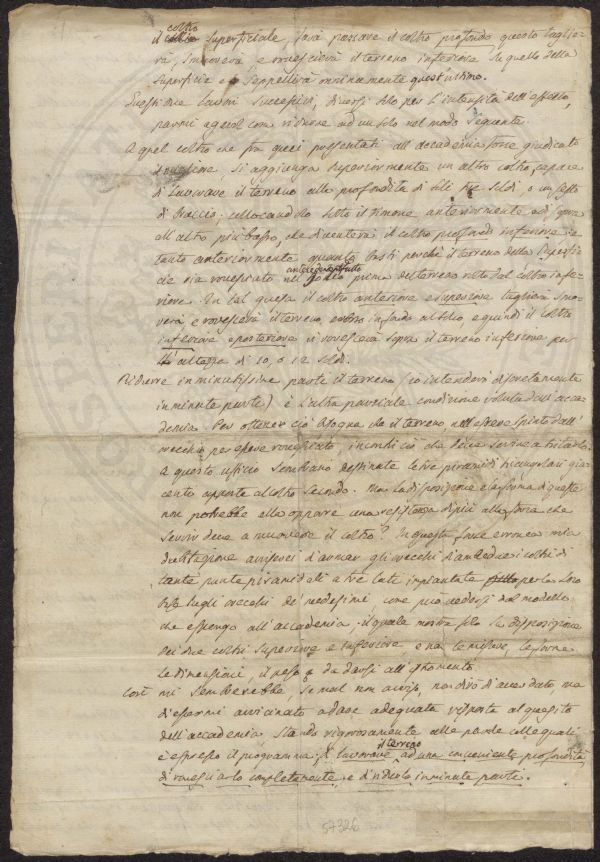 coltro
il superficiale farà passare il coltro profondo questo taglie-
rà, smoverà e rovescierà il terreno inferiore su quello della
superficie e seppellirà onninamente quest'ultimo.
Questi due lavori successivi, diversi solo per l'intensità dell'effetto,
parmi agevol cosa ridurre ad un solo nel modo seguente.
A quel coltro che fra quei presentati all'accademia fosse giudicato
il migliore si aggiunga superiormente un altro coltro capace
di lavorare il terreno alla profondità di soli tre soldi o un sesto
di braccio; collocandolo sotto il timone anteriormente ed sopra
all'altro più basso, che diventerà il coltro profondo inferiore e
tanto anteriormente quanto basti perchè il terreno della superfi-
antecedentemente
cie sia rovesciato nel prima del terreno rotto dal coltro infe-
riore. In tal guisa il coltro anteriore e superiore taglierà smo-
verà e rovescierà il terreno in fondo al solco e quindi il coltro
inferiore e posteriore rovescerà sopra il terreno inferiore per
l'altezza di 10, o 12 soldi.
Ridurre in minutissime parti il terreno (io intenderei discretamente
in minute parti) è l'altra parziale condizione voluta dall'acca-
demia. Per ottener ciò bisogna che il terreno nell'essere spinto dall'
orecchio per essere rovesciato, incontri ciò che deve servire a tritarlo.
A questo ufficio sembrano destinate le tre piramidi triangolari gia-
centi apposte al coltro secondo. Ma la disposizione e la forma di queste
non potrebbe ella opporre una resistenza di più alla forza che
servir deve a muovere il coltro? In questa forse erronea mia
dubitazione avviserei d'armar gli orecchi d'ambedue i coltri di
tante punte piramidali a tre lati impiantate per la loro
base sugli orecchi de' medesimi come può vedersi dal modello
che espongo all'accademia il quale mostra solo la disposizione
dei due coltri superiore e inferiore, e non le misure, la forma
le dimensioni, il peso da darsi all'istrumento
Così mi sembrerebbe, se mal non avviso, non dirò d'aver dato, ma
d'essermi avvicinato a dare adeguata risposta al quesito
dell'accademia stando rigorosamente alle parole colle quali
il terreno
è espresso il programma; Di lavorare ad una conveniente profondità
di rovesciarlo completamente e di ridurlo in minute parti.
57326